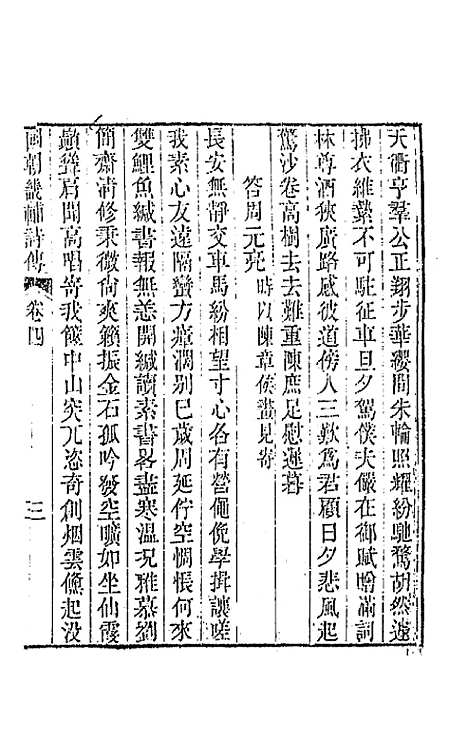 天衢亨羣公正翔步華纓間朱輪照耀紛馳騖胡然遽
拂衣維縶不可駐征車旦夕駕僕夫儼在御賦贈滿詞
林尊酒狹廣路感彼道傍人三歎爲君顧日夕悲風起
驚沙卷高樹去去難重陳庶足慰遲暮
答周元亮時以陳章侯畫見寄
長安無靜交車馬紛相望寸心各有營僶俛學揖讓嗟
我素心友遠隔蠻方瘴濶别已歲周延佇空惆悵何來
雙鯉魚緘書報無恙開緘讀素書畧盡寒温况雅慕劉
簡齋清修秉微尚爽籟振金石孤吟發空曠如坐仙霞
巔聳肩聞高唱寄我篋中山突兀恣奇創烟雲儵起没
國朝畿輔詩傳 卷四 三